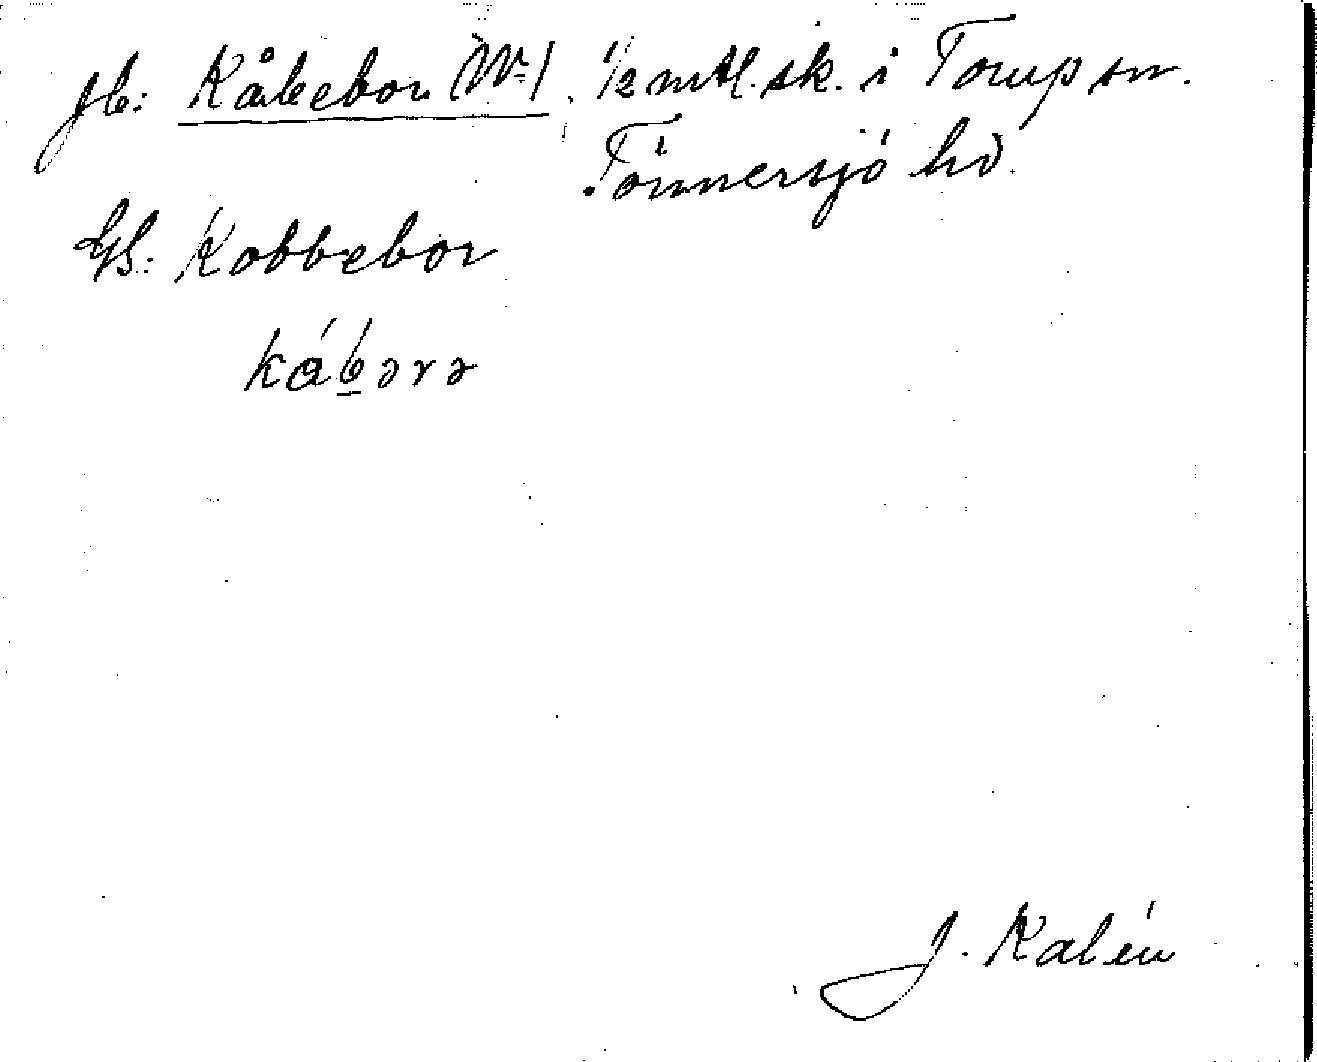 Jb: Kåbebor (N:) 1/2 mtl. sk. i Torup sn.
Tönnersjö hd.
Gs: Kobbebor
kábərə
J. Kalén